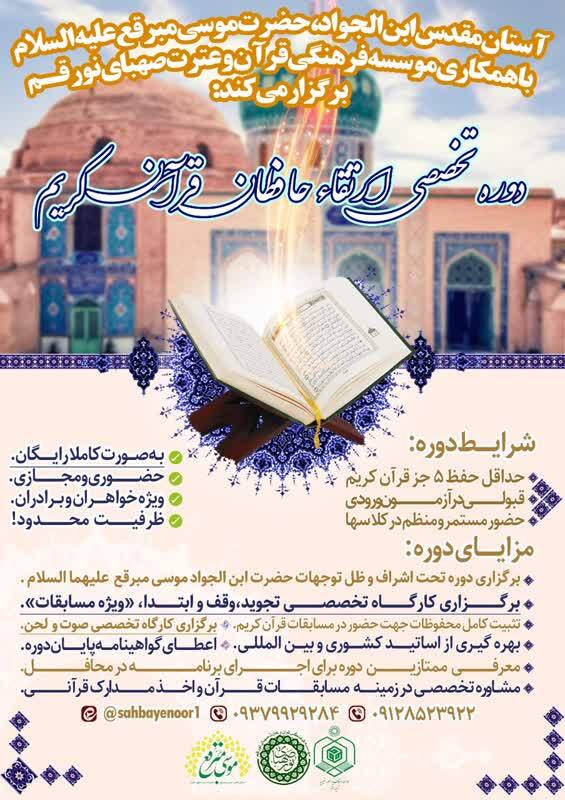 آستان مقدس ابن الجواد، حضرت موسی مبرقع علیه السلام
با همکاری موسسه فرهنگی قرآن و عترت صهبای نور قم
برگزار می کند:
دوره تخصصی ارتقاء حافظان قرآن کریم
شرایط دوره:
حداقل حفظ ۵ جز قرآن کریم
قبولی در آزمون ورودی
حضور مستمر و منظم در کلاسها
به صورت کاملا رایگان.
حضوری و مجازی.
ویژه خواهران و برادران.
ظرفیت محدود!
مزایای دوره:
برگزاری دوره تحت اشراف و ظل توجهات حضرت ابن الجواد موسی مبرقع علیهما السلام .
برگزاری کارگاه تخصصی تجوید،وقف و ابتدا، «ویژه مسابقات».
تثبیت کامل محفوظات جهت حضور در مسابقات قرآن کریم. برگزاری کارگاه تخصصی صوت و لحن.
بهره گیری از اساتید کشوری و بین المللی. اعطای گواهینامه پایان دوره.
معرفی ممتازین دوره برای اجرای برنامه در محافل.
مشاوره تخصصی در زمینه مسابقات قرآن و اخذ مدارک قرآنی.
۰۹۱۲۸۵۲۳۹۲۲ ۰۹۳۷۹۹۲۹۲۸۴ @sahbayenoor1
موسی مبرقع